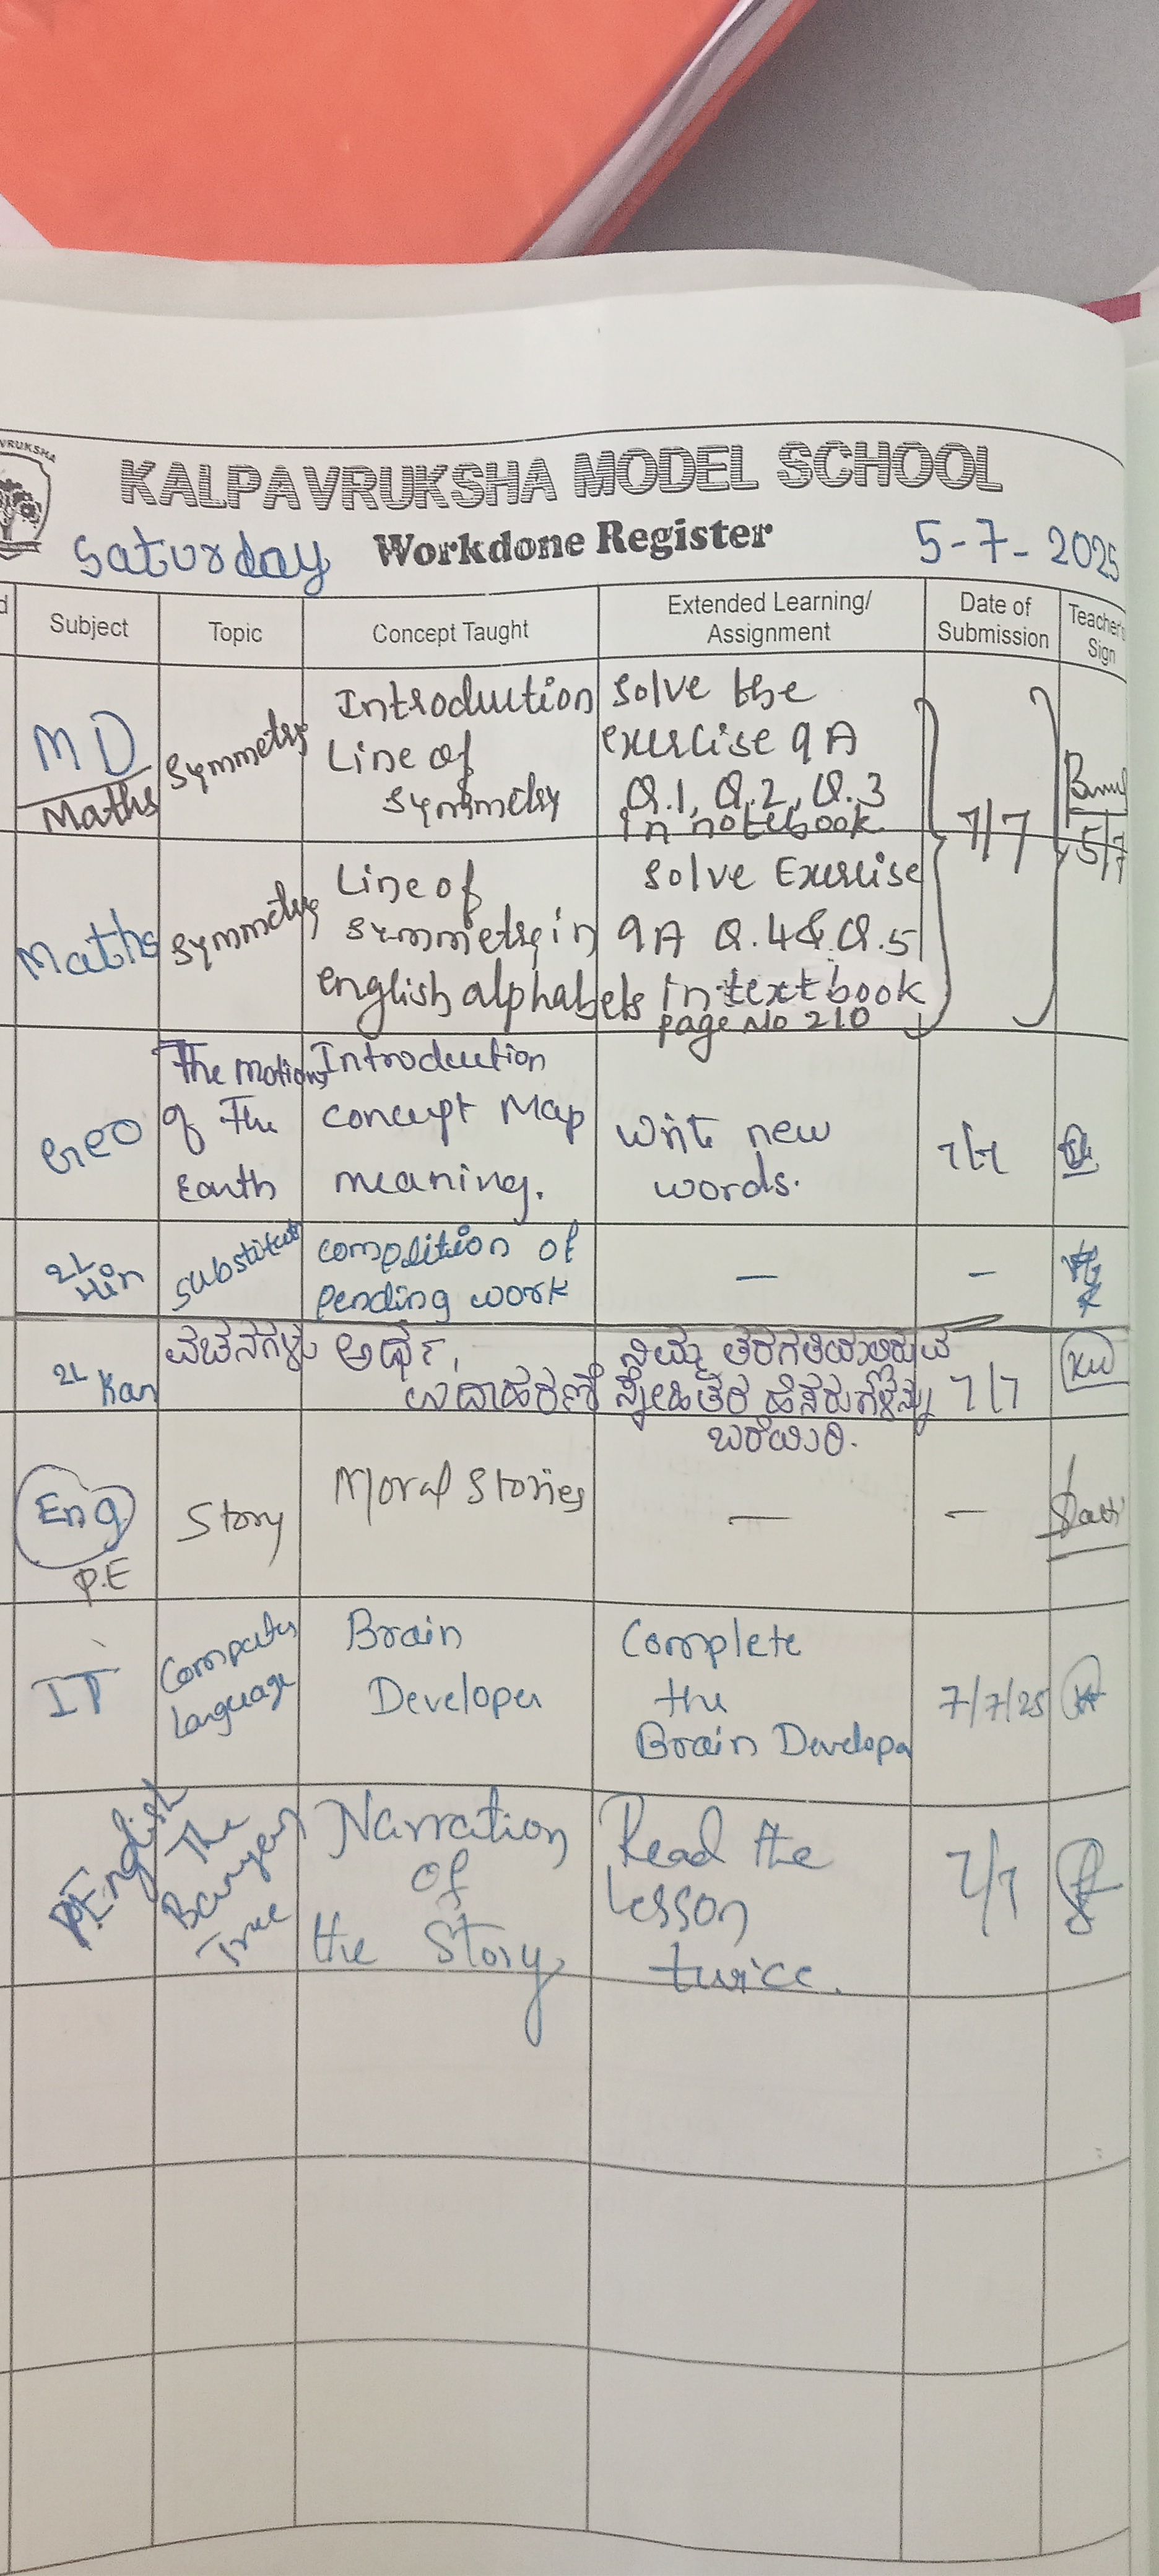 VRUKSHA
KALPAVRUKSHA MODEL SCHOOL
Saturday Workdone Register 5-7-2025
Subject Topic Concept Taught Extended Learning/ Assignment Date of Submission Teacher's Sign
MD
Maths
Symmetry
Introduction
Line of
Symmetry
Solve the
exercise 9A
Q.1, Q.2, Q.3
in notebook
7/7
5/7
Maths
Symmetry
Line of
Symmetry in
english alphabets
Solve Exercise
9A Q.4 & Q.5
in textbook
page No 210
Geo
The Motions
of The
Earth
Introduction
concept Map
meaning.
Write new
words.
7/7
2L
Hin
Substitution
complition of
pending work
—
—
2L
Kan
ವಚನಗಳು
ಅರ್ಥ,
ಉದಾಹರಣೆ
ನಿಮ್ಮ ತರಗತಿಯಲ್ಲಿರುವ
ಸ್ನೇಹಿತರ ಹೆಸರುಗಳನ್ನು
ಬರೆಯಿರಿ.
7/7
Eng
P.E
Story
Moral Stories
—
—
IT
Computer
language
Brain
Developer
Complete
the
Brain Develope
7/7/25
English
The
Banyan
Tree
Narration
of
the Story
Read the
Lesson
twice.
7/7